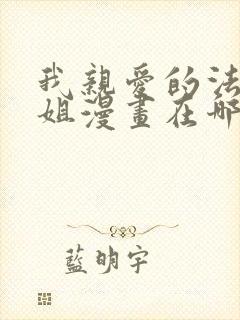 我親愛的法
姐漫畫在哪
藍明宇